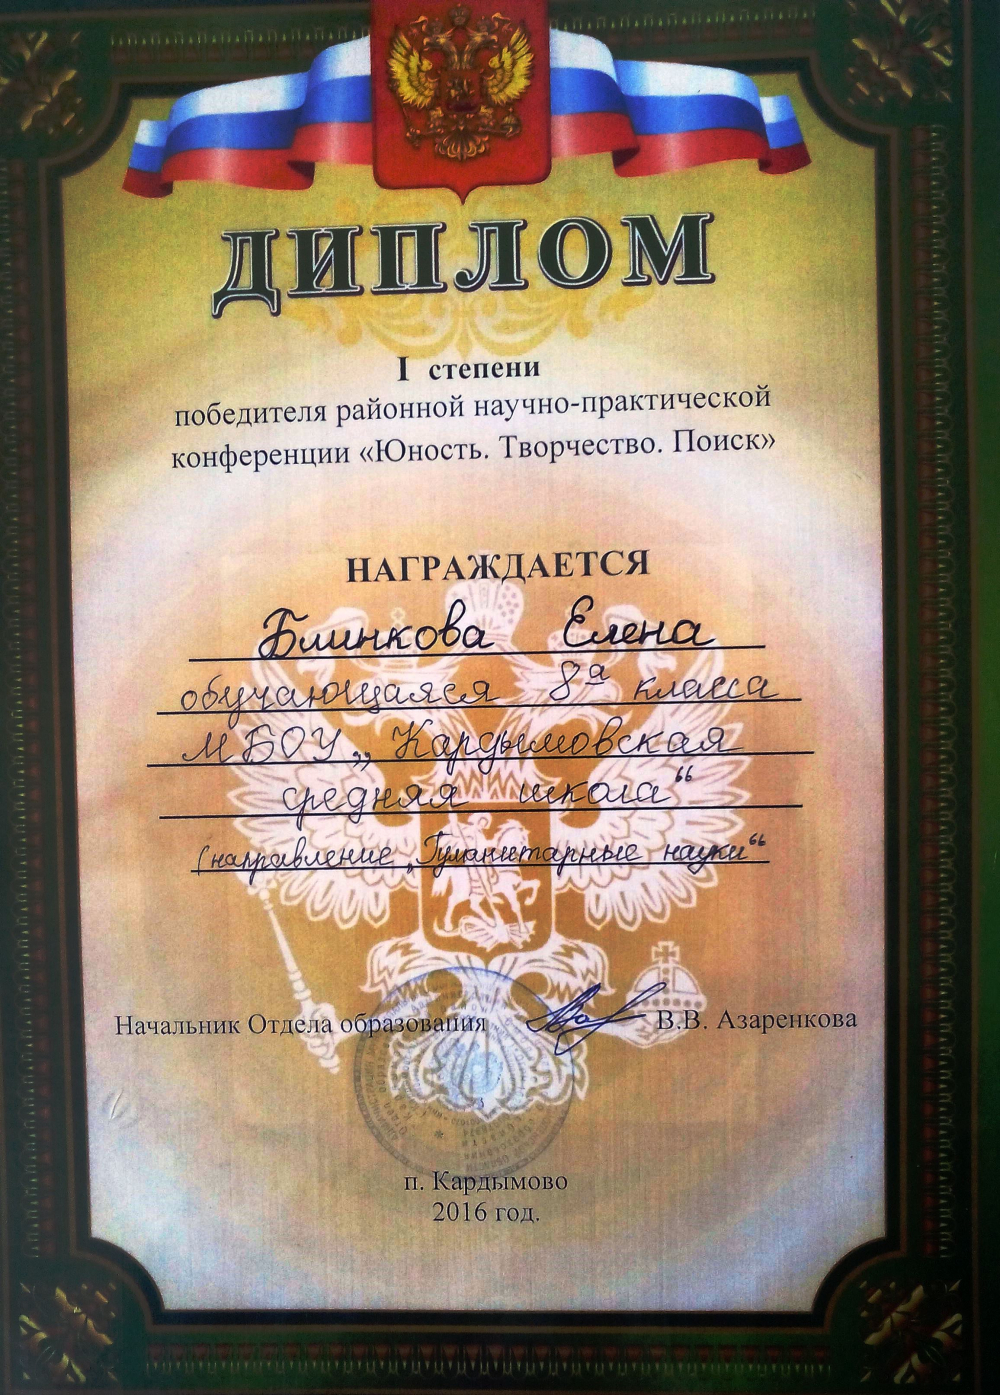 ДИПЛОМ
I степени
победителя районной научно-практической
конференции «Юность. Творчество. Поиск»
НАГРАЖДАЕТСЯ
Блинкова Елена
обучающаяся 8а класса
МБОУ „Кардымовская
средняя школа“
(направление „Гуманитарные науки“
Начальник Отдела образования В.В. Азаренкова
п. Кардымово
2016 год.